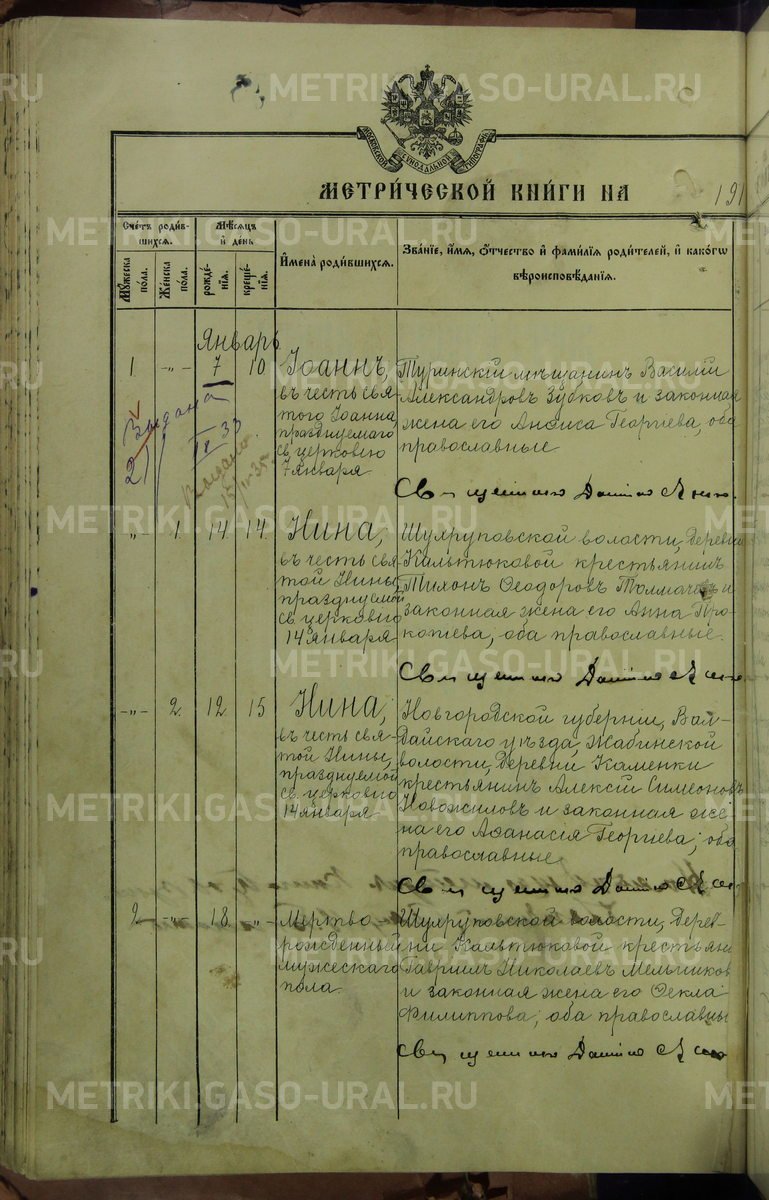 METRIKI.GASO-URAL.RU
МОСКОВСКОЙ СѴНОДАЛЬНОЙ ТИПОГРАФІИ
МЕТРИ́ЧЕСКОЙ КНИ́ГИ НА 191
Сче́тъ роди́в-
шихся.
Мꙋ́жеска
по́ла.
Же́нска
по́ла.
Мѣ́сяцъ
и҆ де́нь
рожде́-
нїѧ.
креще́-
нїѧ.
И҆мена̀ роди́вшихся.
Зва́нїе, и҆́мѧ, ѻ҆́тчество и҆ фами́лїѧ роди́телей, и҆ како́гѡ
вѣроисповѣ́данїѧ.
Январь
1. -„- 7 10
Іоаннъ,
въ честь свя-
того Іоанна,
празднуемаго
св. церковью
7 января
Туринскій мѣщанинъ Василій
Александровъ Зубковъ и законная
жена его Анѳиса Георгіева, оба
православные
Выдана
Священникъ
„- 1. 14. 14.
Нина,
въ честь свя-
той Нины,
празднуемой
св. церковію
14 января
Шуляруповской волости, деревни
Кальтюковой крестьянинъ
Тихонъ Ѳеодоровъ Толмачевъ и
законная жена его Анна Про-
копіева, оба православные.
Священникъ
-„- 2. 12. 15
Нина,
въ честь свя-
той Нины,
празднуемой
св. церковію
14 января
Новгородской губерніи, Вал-
дайскаго уѣзда, Жабинской
волости, деревни Каменки
крестьянинъ Алексій Симеоновъ
Новожиловъ и законная же-
на его Аѳанасія Георгіева, оба
православные
Священникъ
2 -„- 18. „-
Мертво-
рожденный
мужескаго
пола.
Шуляруповской волости, дерев-
ни Кальтюковой крестьян
Гавріилъ Николаевъ Мельников
и законная жена его Ѳекла
Филиппова, оба православны
Священникъ